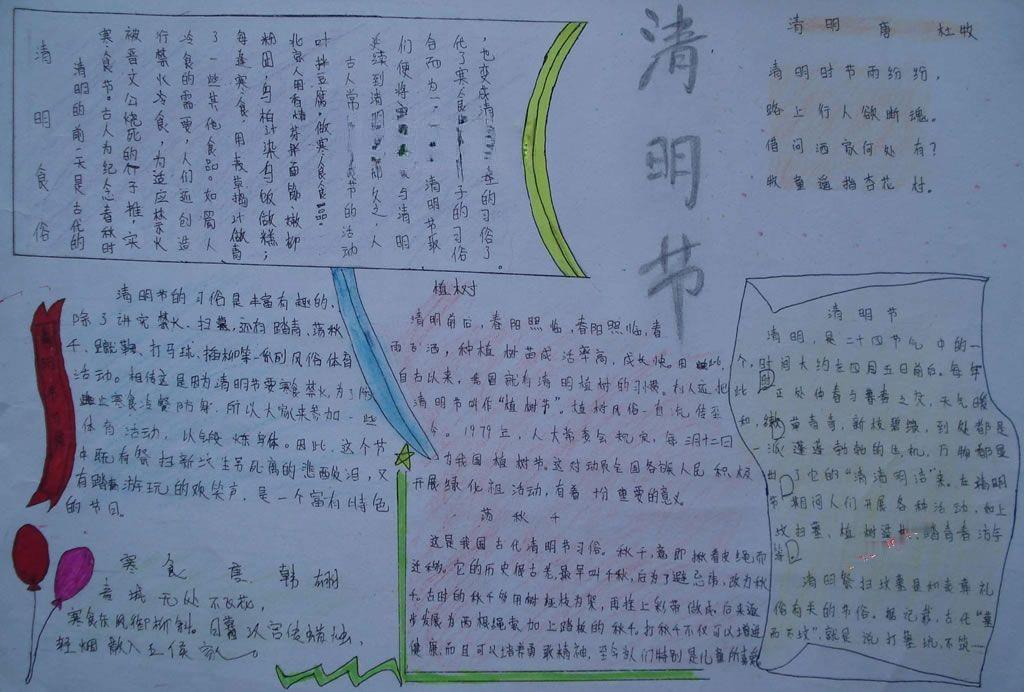 清明节
清明食俗
清明的前一天是古代的
寒食节。古人为纪念春秋时
被晋文公烧死的介子推,实
行禁火冷食,为适应禁火
冷食的需要,人们还创造
了一些其他食品。如蜀人
每逢寒食,用
北京人用
叶拌豆腐,做寒食食品
古人常 节的活动
延续到清明 久之,人
们便将寒 与清明
合而为一。 清明节取
代了寒食 子的习俗
,也变成清 的习俗了。
清明 唐 杜牧
清明时节雨纷纷,
路上行人欲断魂。
借问酒家何处有?
牧童遥指杏花村。
清明节的习俗是丰富有趣的、
除了讲究禁火、扫墓,还有踏青、荡秋
千、蹴鞠、打马球、插柳等一系列风俗体育
活动。相传这是因为清明节要寒食禁火,为了防
止寒食冷餐防身,所以大家来参加一些
体育活动,以锻炼身体。因此,这个节
中既有祭扫新坟生离死离的悲酸泪,又
有踏青游玩的欢笑声,是一个富有特色
的节日。
寒食 唐 韩翃
春城无处不飞花,
寒食东风御柳斜。日暮汉宫传蜡烛,
轻烟散入五侯家。
植树
清明前后,春阳照临,春阳照临,春
雨飞洒,种植树苗成活率高,成长快。因此,
自古以来,我国就有清明植树的习惯。有人还把
清明节叫作“植树节”。植树风俗一直流传至
今。1979年,人大常委会规定,每三月十二日
为我国植树节。这对动员全国各族人民积极
开展绿化祖活动,有着十分重要的意义。
荡秋千
这是我国古代清明节习俗。秋千,意即揪着皮绳而
迁移。它的历史很古老,最早叫千秋,后为了避忌讳,改为秋
千。古时的秋千多用树桠枝为架,再拴上彩带做成。后来逐
步发展为两根绳索加上踏板的秋千。打秋千不仅可以增进
健康,而且可以培养勇敢精神,至今为人们特别是儿童所喜爱
清明节
清明,是二十四节气中的一
个,时间大约在四月五日前后。每年
此 正处仲春与暮春之交,天气暖
和,嫩苗青青,新枝碧绿,到处都是
一派蓬蓬勃勃的生机,万物都显
出了它的“清清明洁”来。在清明
节期间人们开展各种活动,如上
坟扫墓、植树 踏青
等
清明祭扫坟墓是和丧葬礼
俗有关的节俗。据记载,古代“墓
而不坟”,就是说打墓坑,不筑一